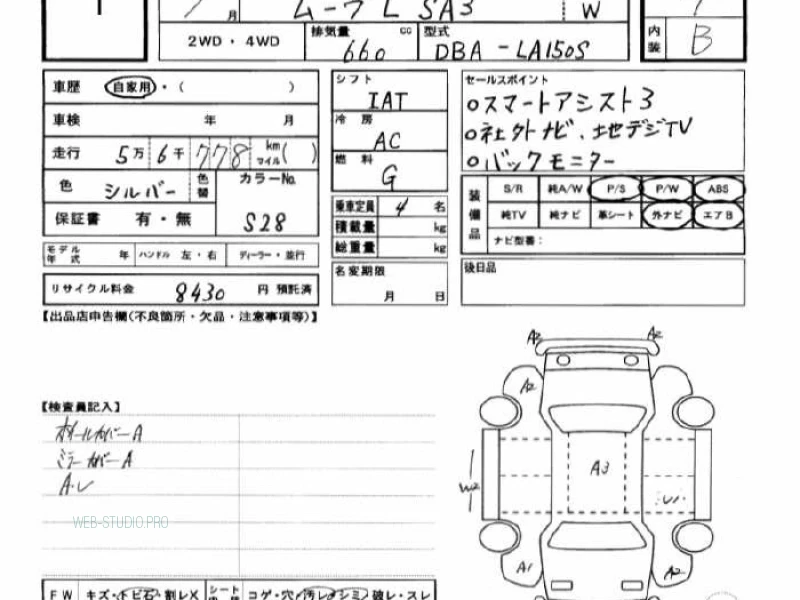 月 ムーブ L SA3 W
2WD・4WD 排気量 660 cc 型式 DBA-LA150S
内装 B
車歴 自家用・( )
車検 年 月
走行 5万6千778 km マイル( )
色 シルバー 色替 カラーNo. S28
保証書 有・無
モデル年式 年 ハンドル 左・右 ディーラー・並行
リサイクル料金 8430 円 預託済
シフト IAT
冷房 AC
燃料 G
乗車定員 4 名
積載量 kg
総重量 kg
名変期限
月 日
セールスポイント
○スマートアシスト3
○社外ナビ、地デジTV
○バックモニター
装備品 S/R 純A/W P/S P/W ABS
純TV 純ナビ 革シート 外ナビ エアB
ナビ型番:
後日品
【出品店申告欄(不良箇所・欠品・注意事項等)】
【検査員記入】
ホイールカバーA
ミラーカバーA
A.レ
WEB-STUDIO.PRO
A2 A2
A2
A3
W2
A1 A2
FW キズ・トビ石・割レX シート コゲ・穴・汚レ・シミ・破レ・スレ